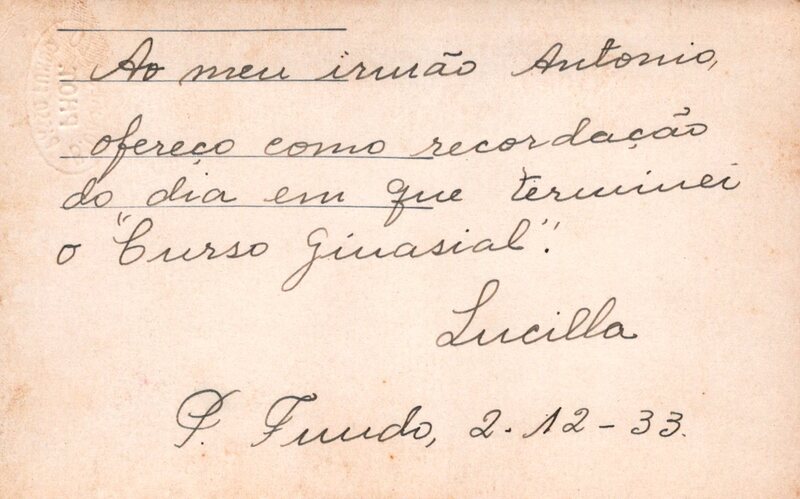 Ao meu irmão Antonio,
ofereço como recordação
do dia em que terminei
o "Curso Ginasial".
Lucilla
P. Fundo, 2-12-33.